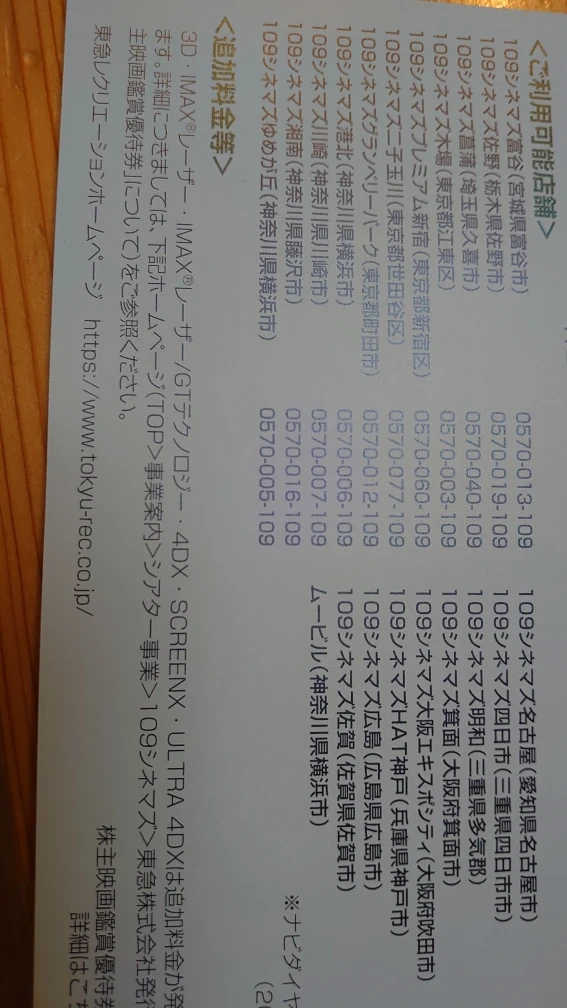 <ご利用可能店舗>
109シネマズ富谷(宮城県富谷市) 0570-013-109
109シネマズ佐野(栃木県佐野市) 0570-019-109
109シネマズ菖蒲(埼玉県久喜市) 0570-040-109
109シネマズ木場(東京都江東区) 0570-003-109
109シネマズプレミアム新宿(東京都新宿区) 0570-060-109
109シネマズ二子玉川(東京都世田谷区) 0570-077-109
109シネマズグランベリーパーク(東京都町田市) 0570-012-109
109シネマズ港北(神奈川県横浜市) 0570-006-109
109シネマズ川崎(神奈川県川崎市) 0570-007-109
109シネマズ湘南(神奈川県藤沢市) 0570-016-109
109シネマズゆめが丘(神奈川県横浜市) 0570-005-109
109シネマズ名古屋(愛知県名古屋市)
109シネマズ四日市(三重県四日市市)
109シネマズ明和(三重県多気郡)
109シネマズ箕面(大阪府箕面市)
109シネマズ大阪エキスポシティ(大阪府吹田市)
109シネマズHAT神戸(兵庫県神戸市)
109シネマズ広島(広島県広島市)
109シネマズ佐賀(佐賀県佐賀市)
ムービル(神奈川県横浜市)
※ナビダイヤ
(2
<追加料金等>
3D・IMAX®レーザー・IMAX®レーザー/GTテクノロジー・4DX・SCREENX・ULTRA 4DXは追加料金が発
ます。詳細につきましては、下記ホームページ(TOP>事業案内>シアター事業>109シネマズ>東急株式会社発行
主映画鑑賞優待券」について)をご参照ください。
東急レクリエーションホームページ https://www.tokyu-rec.co.jp/
株主映画鑑賞優待券
詳細はこち